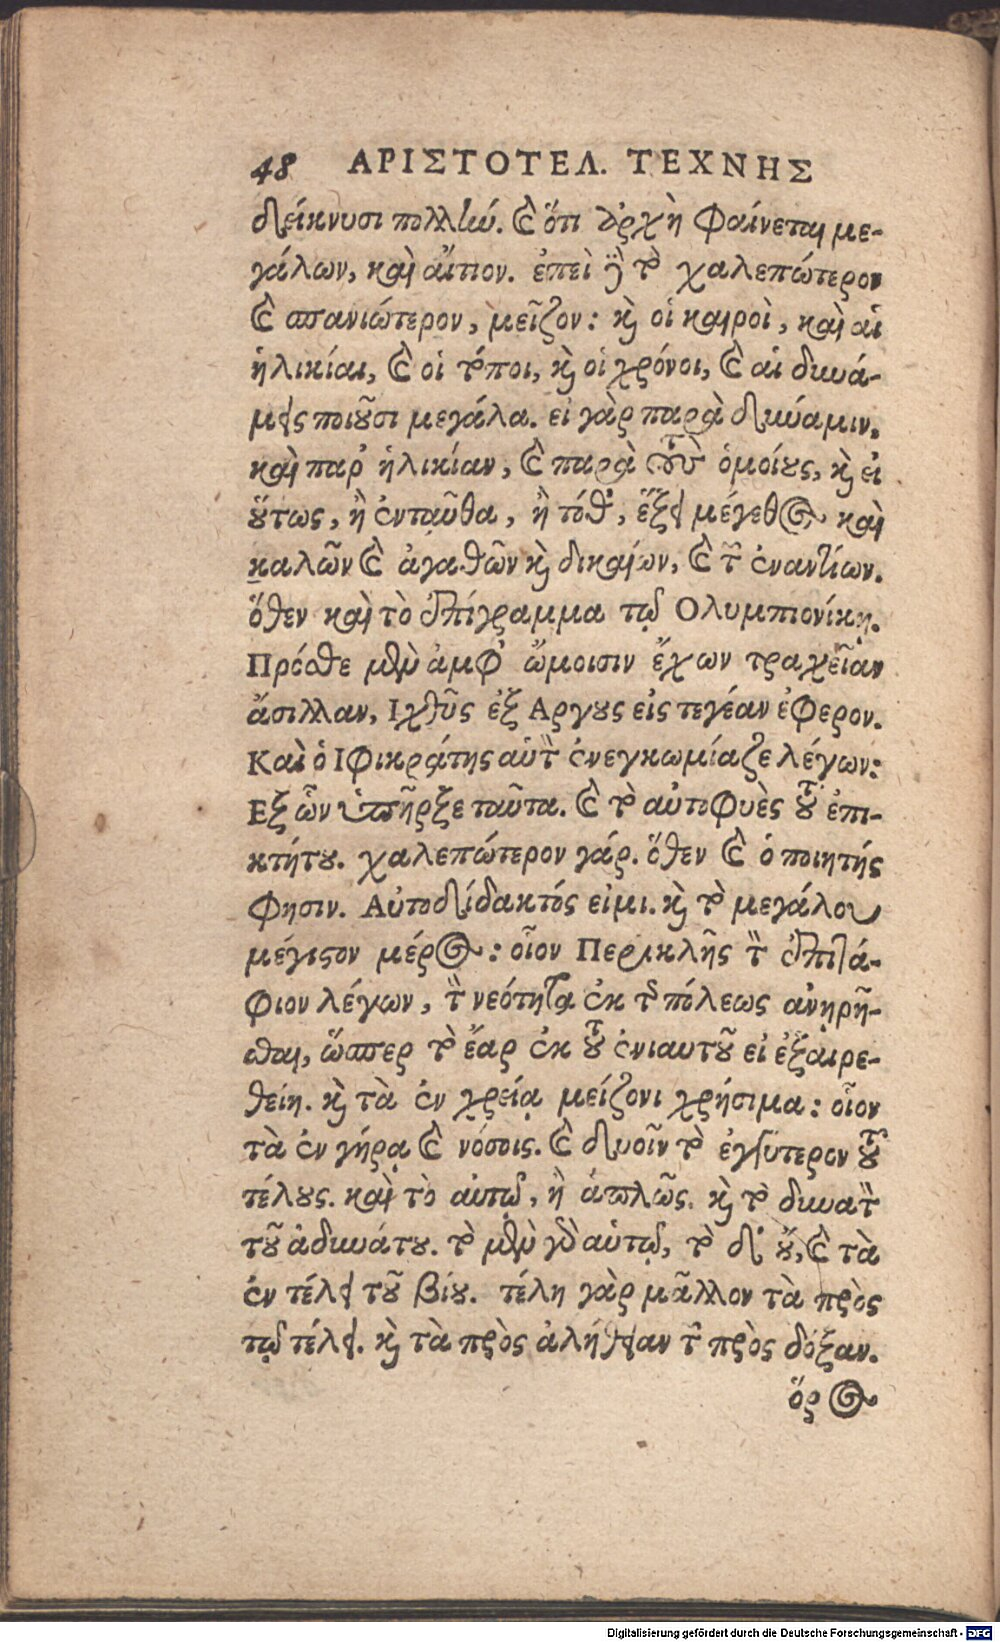 48 ΑΡΙΣΤΟΤΕΛ. ΤΕΧΝΗΣ
δείκνυσι πολλὴν. καὶ ὅτι ἀρχὴ φαίνεται με-
γάλων, καὶ αἴτιον. ἐπεὶ δὲ τὸ χαλεπώτερον
καὶ σπανιώτερον, μεῖζον: καὶ οἱ καιροὶ, καὶ αἱ
ἡλικίαι, καὶ οἱ τόποι, καὶ οἱ χρόνοι, καὶ αἱ δυνά-
μεις ποιοῦσι μεγάλα. εἰ γὰρ παρὰ δύναμιν,
καὶ παρ' ἡλικίαν, καὶ παρὰ τοὺς ὁμοίους, καὶ εἰ
οὕτως, ἢ ἐνταῦθα, ἢ τόθ', ἕξει μέγεθος καὶ
καλῶν καὶ ἀγαθῶν καὶ δικαίων, καὶ τῶν ἐναντίων.
ὅθεν καὶ τὸ ἐπίγραμμα τῷ Ολυμπιονίκῃ.
Πρόσθε μὲν ἀμφ' ὤμοισιν ἔχων τραχεῖαν
ἄσιλλαν, Ιχθῦς ἐξ Αργους εἰς τεγέαν ἐφερον.
Καὶ ὁ Ιφικράτης αὑτὸν ἐνεγκωμίαζε λέγων:
Εξ ὧν ὑπῆρξε ταῦτα. καὶ τὸ αὐτοφυὲς τοῦ ἐπι-
κτήτου. χαλεπώτερον γάρ. ὅθεν καὶ ὁ ποιητής
φησιν. Αὐτοδίδακτός εἰμι. καὶ τὸ μεγάλου
μέγιστον μέρος: οἷον Περικλῆς τὸν ἐπιτά-
φιον λέγων, τὴν νεότητα ἐκ τῆς πόλεως ἀνῃρῆ-
σθαι, ὥσπερ τὸ ἔαρ ἐκ τοῦ ἐνιαυτοῦ εἰ ἐξαιρε-
θείη. καὶ τὰ ἐν χρείᾳ μείζονι χρήσιμα: οἷον
τὰ ἐν γήρᾳ καὶ νόσοις. καὶ δυοῖν τὸ ἐγγύτερον τοῦ
τέλους. καὶ τὸ αὑτῷ, ἢ ἁπλῶς. καὶ τὸ δυνατὸν
τοῦ ἀδυνάτου. τὸ μὲν γὰρ αὑτῷ, τὸ δ' οὔ, καὶ τὰ
ἐν τέλει τοῦ βίου. τέλη γὰρ μᾶλλον τὰ πρὸς
τῷ τέλει. καὶ τὰ πρὸς ἀλήθειαν τῶν πρὸς δόξαν.
ὅρος
Digitalisierung gefördert durch die Deutsche Forschungsgemeinschaft - DFG